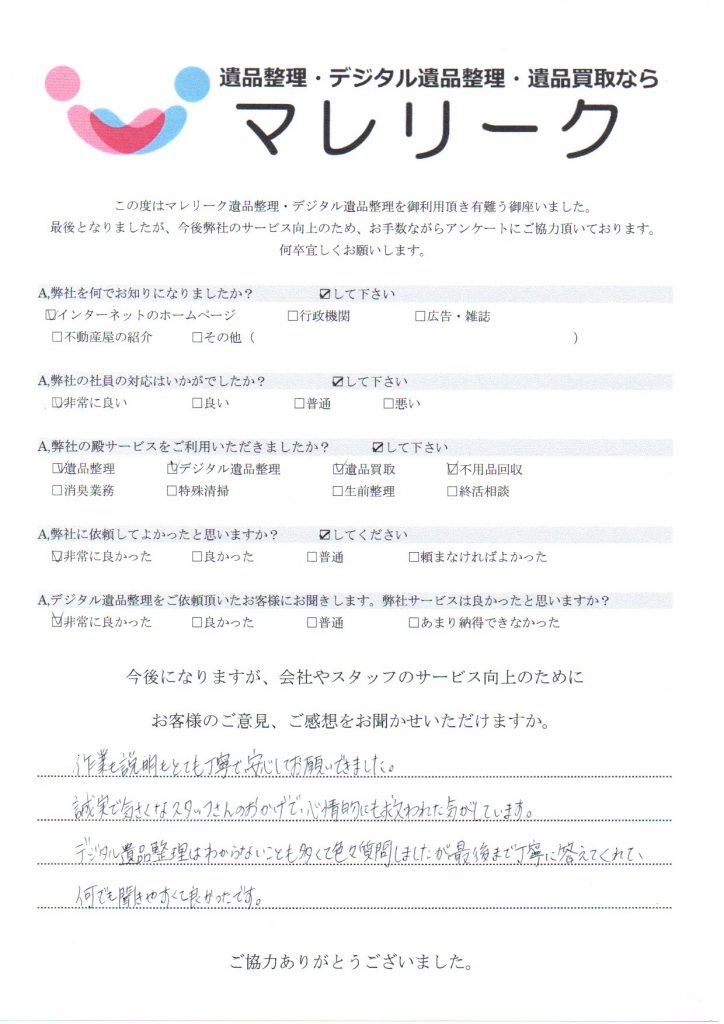 遺品整理・デジタル遺品整理・遺品買取なら
マレリーク
この度はマレリーク遺品整理・デジタル遺品整理を御利用頂き有難う御座いました。
最後となりましたが、今後弊社のサービス向上のため、お手数ながらアンケートにご協力頂いております。
何卒宜しくお願いします。
A,弊社を何でお知りになりましたか？ ☑して下さい
☑インターネットのホームページ □行政機関 □広告・雑誌
□不動産屋の紹介 □その他（ ）
A,弊社の社員の対応はいかがでしたか？ ☑して下さい
☑非常に良い □良い □普通 □悪い
A,弊社の殿サービスをご利用いただきましたか？ ☑して下さい
☑遺品整理 ☑デジタル遺品整理 ☑遺品買取 ☑不用品回収
□消臭業務 □特殊清掃 □生前整理 □終活相談
A,弊社に依頼してよかったと思いますか？ ☑してください
☑非常に良かった □良かった □普通 □頼まなければよかった
A,デジタル遺品整理をご依頼頂いたお客様にお聞きします。弊社サービスは良かったと思いますか？
☑非常に良かった □良かった □普通 □あまり納得できなかった
今後になりますが、会社やスタッフのサービス向上のために
お客様のご意見、ご感想をお聞かせいただけますか。
作業も説明もとても丁寧で安心してお願いできました。
誠実で気さくなスタッフさんのおかげで、心情的にも救われた気がしています。
デジタル遺品整理はわからないことも多くて色々質問しましたが最後まで丁寧に答えてくれて、
何でも聞きやすくて良かったです。
ご協力ありがとうございました。